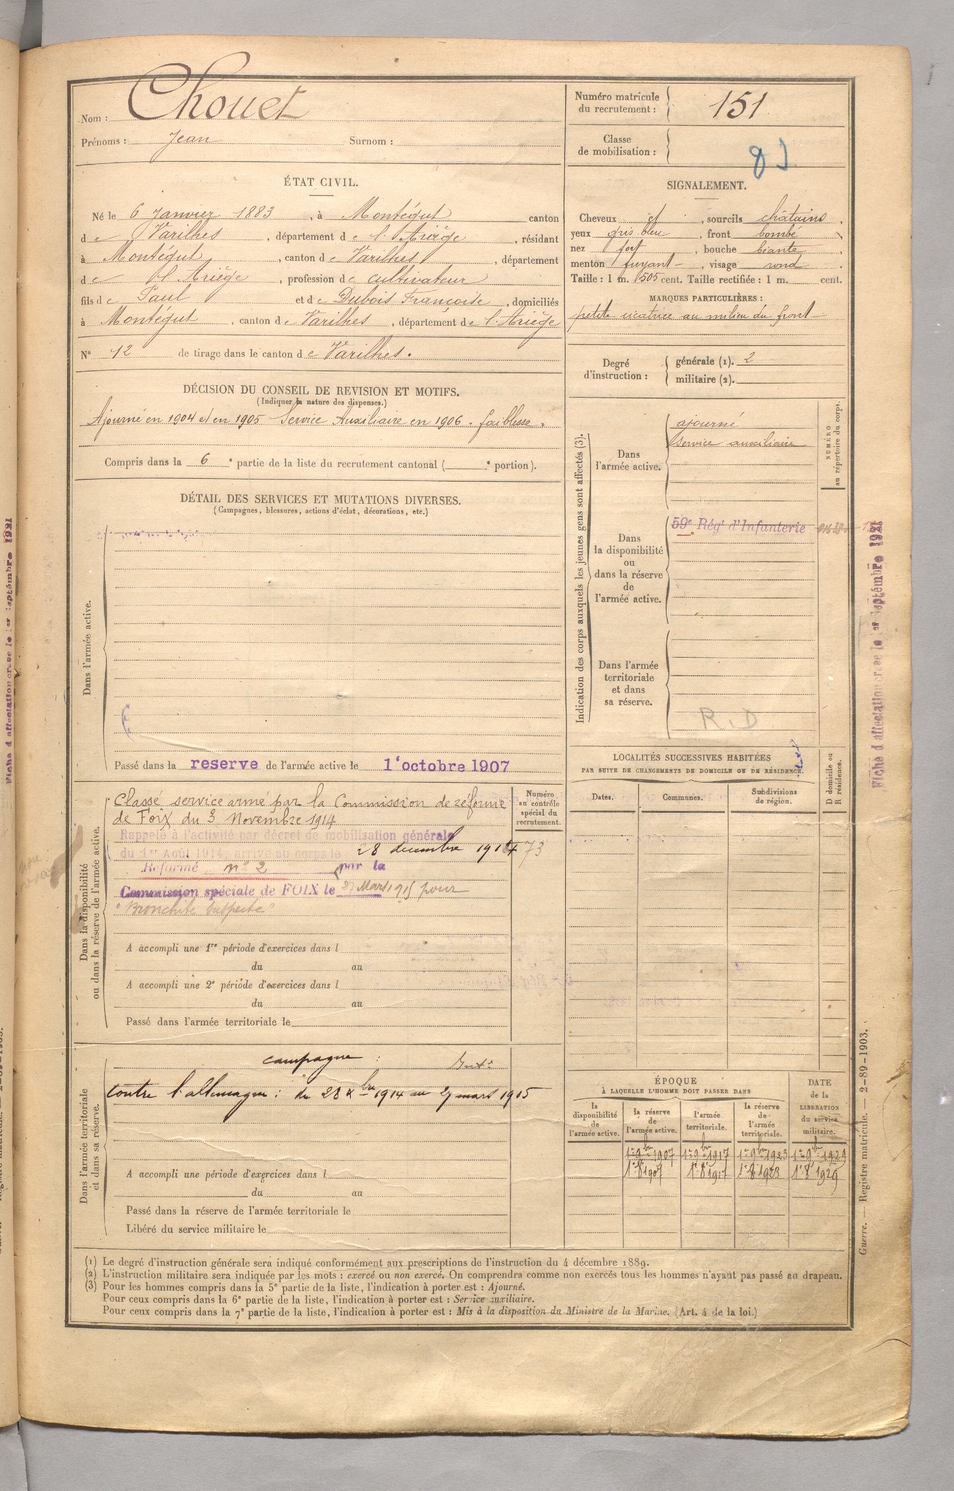 Nom : Chouet
Prénoms : Jean Surnom :
Numéro matricule
du recrutement : 151
Classe
de mobilisation :
ÉTAT CIVIL.
Né le 6 Janvier 1883, à Montégut canton
de Varilhes, département de l'Ariège, résidant
à Montégut, canton de Varilhes, département
de l'Ariège, profession de cultivateur
fils de Paul et de Dubois Françoise, domiciliés
à Montégut, canton de Varilhes, département de l'Ariège
N° 12 de tirage dans le canton de Varilhes.
DÉCISION DU CONSEIL DE REVISION ET MOTIFS.
(Indiquer la nature des dispenses.)
Ajourné en 1904 et en 1905 Service Auxiliaire en 1906. faiblesse.
Compris dans la 6e partie de la liste du recrutement cantonal ( e portion).
DÉTAIL DES SERVICES ET MUTATIONS DIVERSES.
(Campagnes, blessures, actions d'éclat, décorations, etc.)
Dans l'armée active.
Passé dans la reserve de l'armée active le 1er octobre 1907
Dans la disponibilité
ou dans la réserve de l'armée active.
Classé service armé par la Commission de réforme
de Foix du 3 Novembre 1914
Rappelé à l'activité par décret de mobilisation générale
du 1er Août 1914 28 décembre 1914
Réformé n° 2 par la
Commission spéciale de FOIX le Mars 1915 pour
"Bronchite suspecte"
A accompli une 1re période d'exercices dans l
du au
A accompli une 2e période d'exercices dans l
du au
Passé dans l'armée territoriale le
Numéro
au contrôle
spécial du
recrutement.
73
Dans l'armée territoriale
et dans sa réserve.
campagne :
contre l'allemagne : du 28 Xbre 1914 au mars 1915
A accompli une période d'exercices dans l
du au
Passé dans la réserve de l'armée territoriale le
Libéré du service militaire le
SIGNALEMENT.
Cheveux et, sourcils chatains.
yeux gris bleu, front bombé
nez fort, bouche béante
menton fuyant, visage rond
Taille : 1 m. 505 cent. Taille rectifiée : 1 m. cent.
MARQUES PARTICULIÈRES :
petite cicatrice au milieu du front
Degré
d'instruction :
générale (1). 2
militaire (2).
Indication des corps auxquels les jeunes gens sont affectés (3).
NUMÉRO
au répertoire du corps.
Dans
l'armée active.
ajourné
service auxiliaire
Dans
la disponibilité
ou
dans la réserve
de
l'armée active.
59e Régt d'Infanterie
Dans l'armée
territoriale
et dans
sa réserve.
R.D
LOCALITÉS SUCCESSIVES HABITÉES
PAR SUITE DE CHANGEMENTS DE DOMICILE OU DE RÉSIDENCE.
D domicile ou
R résidence.
Dates. Communes. Subdivisions
de région.
ÉPOQUE
À LAQUELLE L'HOMME DOIT PASSER DANS
la
disponibilité
de
l'armée active.
la réserve
de
l'armée active.
l'armée
territoriale.
la réserve
de
l'armée
territoriale.
DATE
de la
LIBÉRATION
du service
militaire.
1er 9bre 1907 1er 9bre 1917 1er 9bre 1923 1er 9bre 1929
1er 8 1907 1er 8 1917 1er 8 1923 1er 8 1929
(1) Le degré d'instruction générale sera indiqué conformément aux prescriptions de l'instruction du 4 décembre 1889.
(2) L'instruction militaire sera indiquée par les mots : exercé ou non exercé. On comprendra comme non exercés tous les hommes n'ayant pas passé au drapeau.
(3) Pour les hommes compris dans la 5e partie de la liste, l'indication à porter est : Ajourné.
Pour ceux compris dans la 6e partie de la liste, l'indication à porter est : Service auxiliaire.
Pour ceux compris dans la 7e partie de la liste, l'indication à porter est : Mis à la disposition du Ministre de la Marine. (Art. 4 de la loi.)
Fiche d'affectation créée le 1er Septembre 1921
Guerre. — Registre matricule. — 2-89-1903.